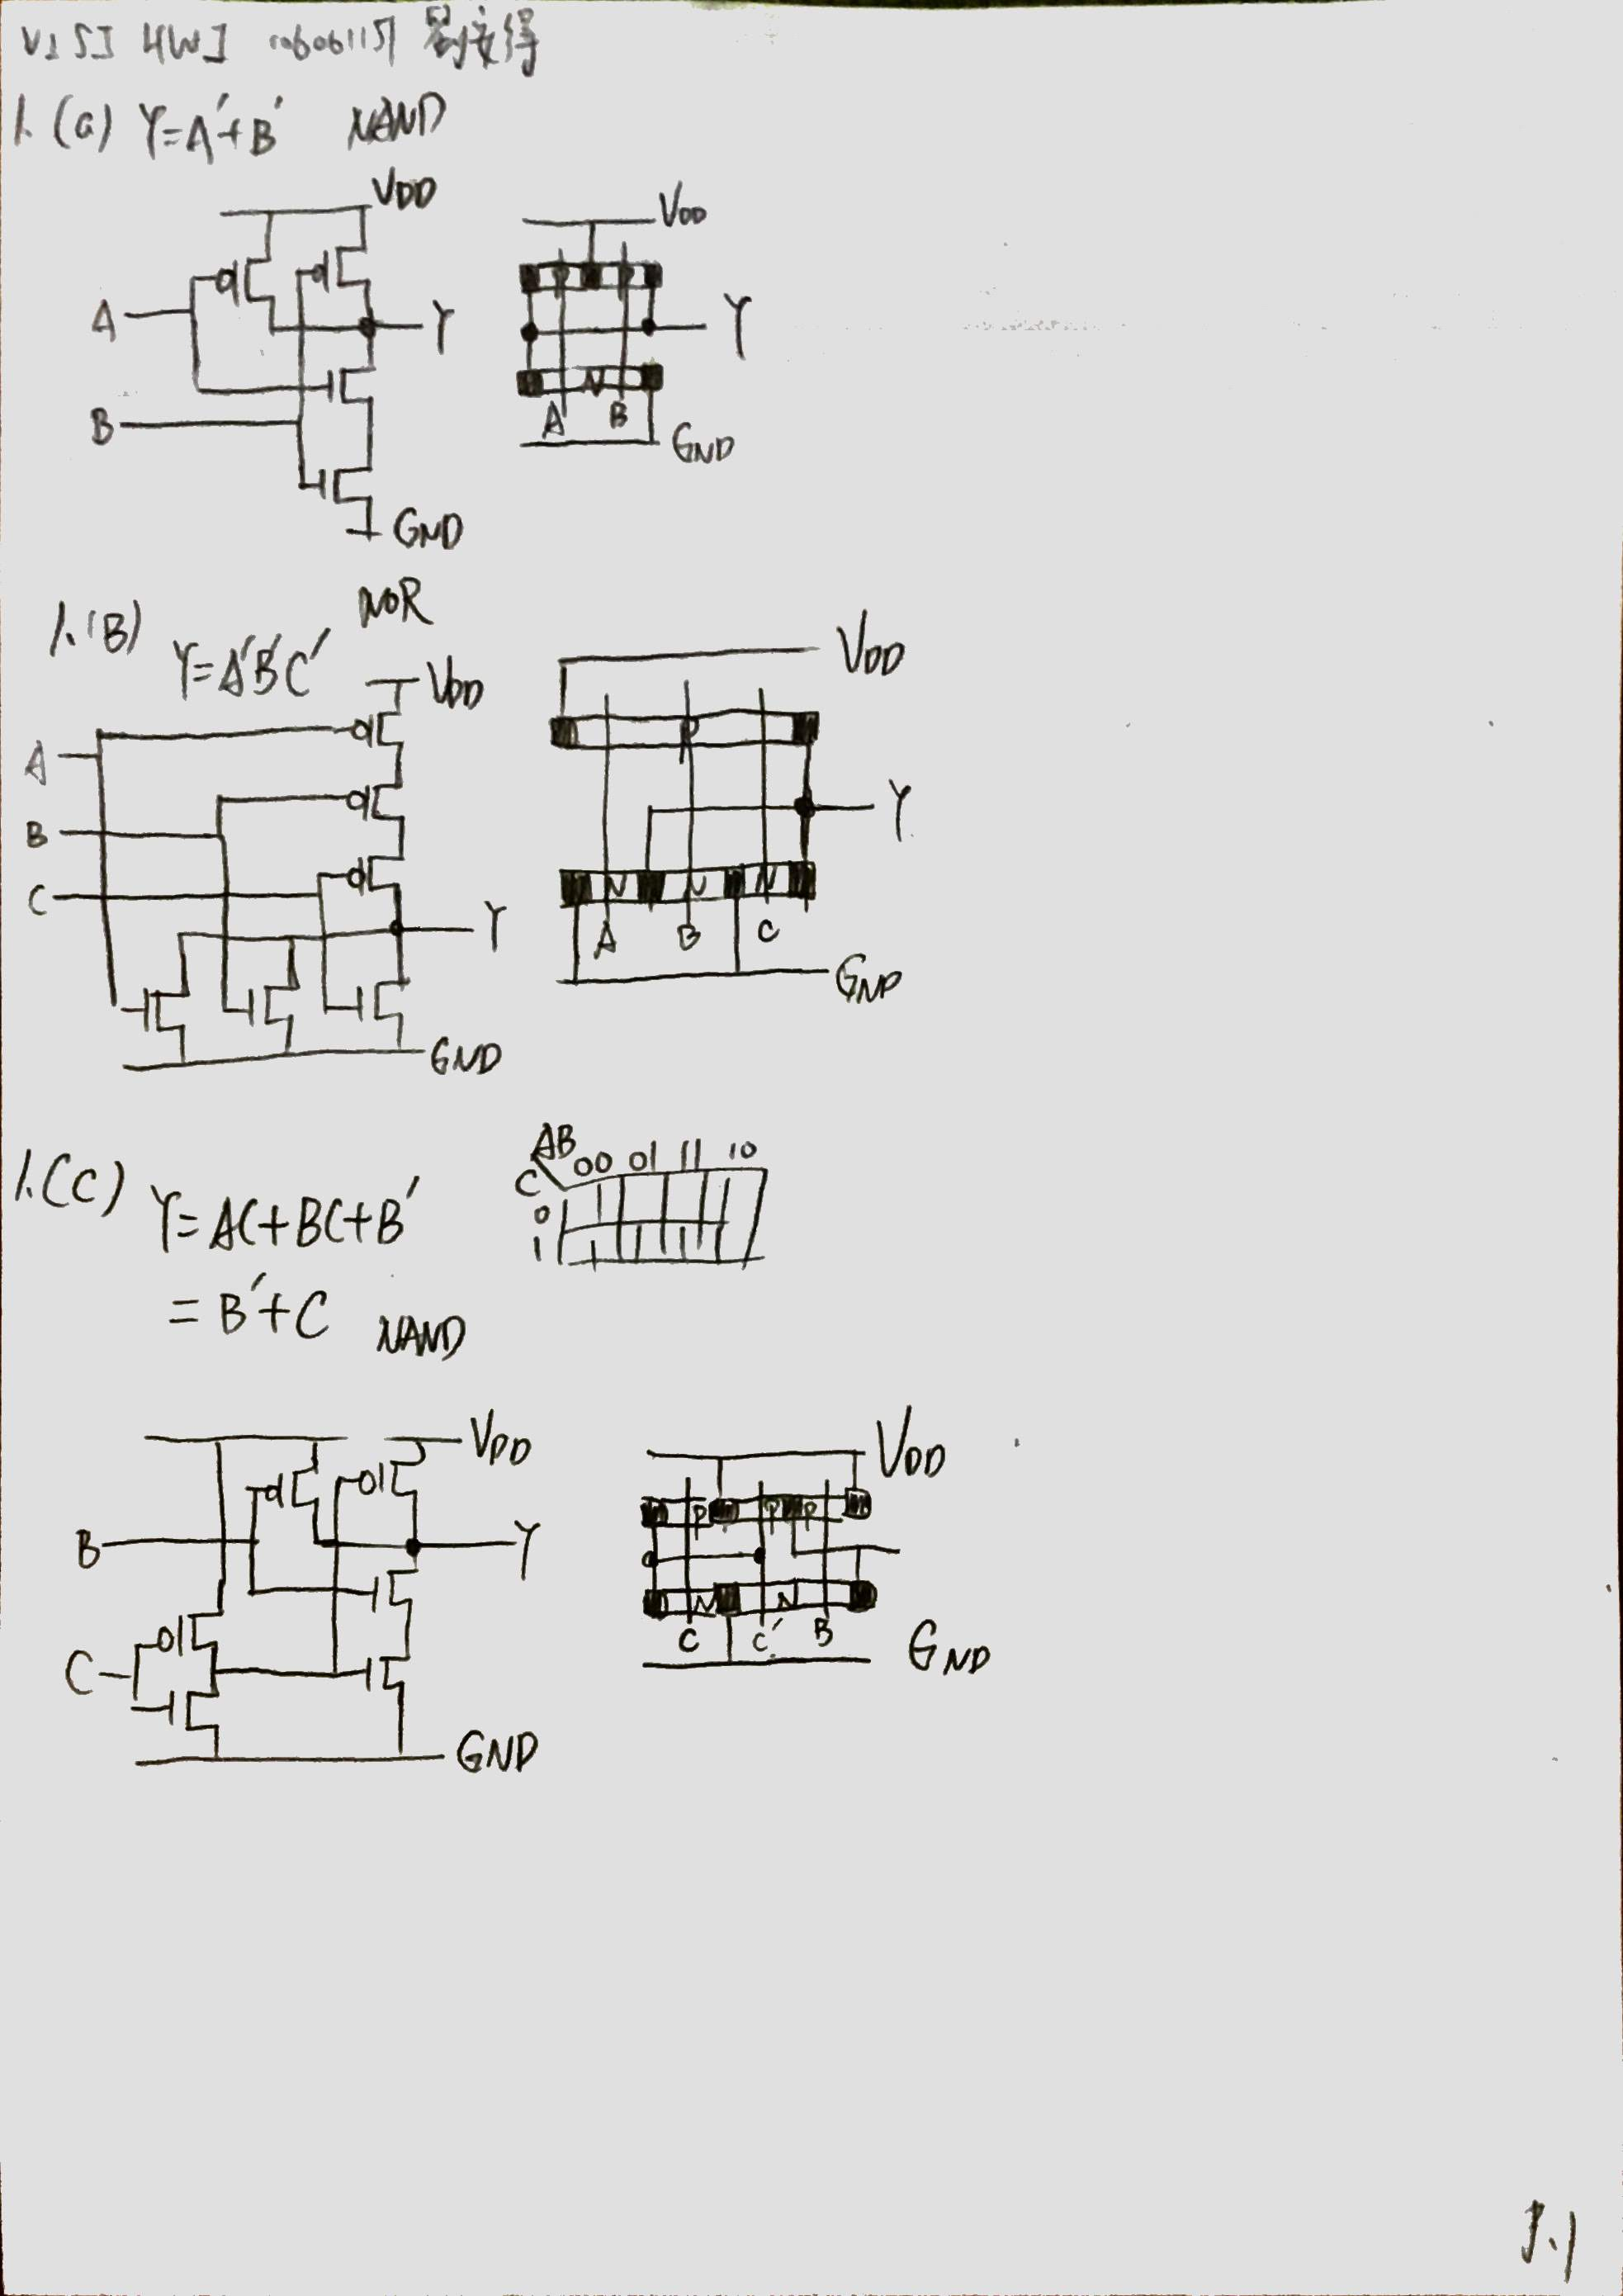 VLSI HW1 106061151 劉安得
1.(a) Y=A'+B' NAND
VDD
A
Y
B
GND
VDD
P P
Y
N
A B
GND
1.(B) Y=A'B'C' NOR
VDD
A
B
C
Y
GND
VDD
P
Y
N N N
A B C
GND
1.(C) Y=AC+BC+B'
=B'+C NAND
AB 00 01 11 10
C
0
1
VDD
B
Y
C
GND
VDD
P P P
N N
C C' B
GND
P.1